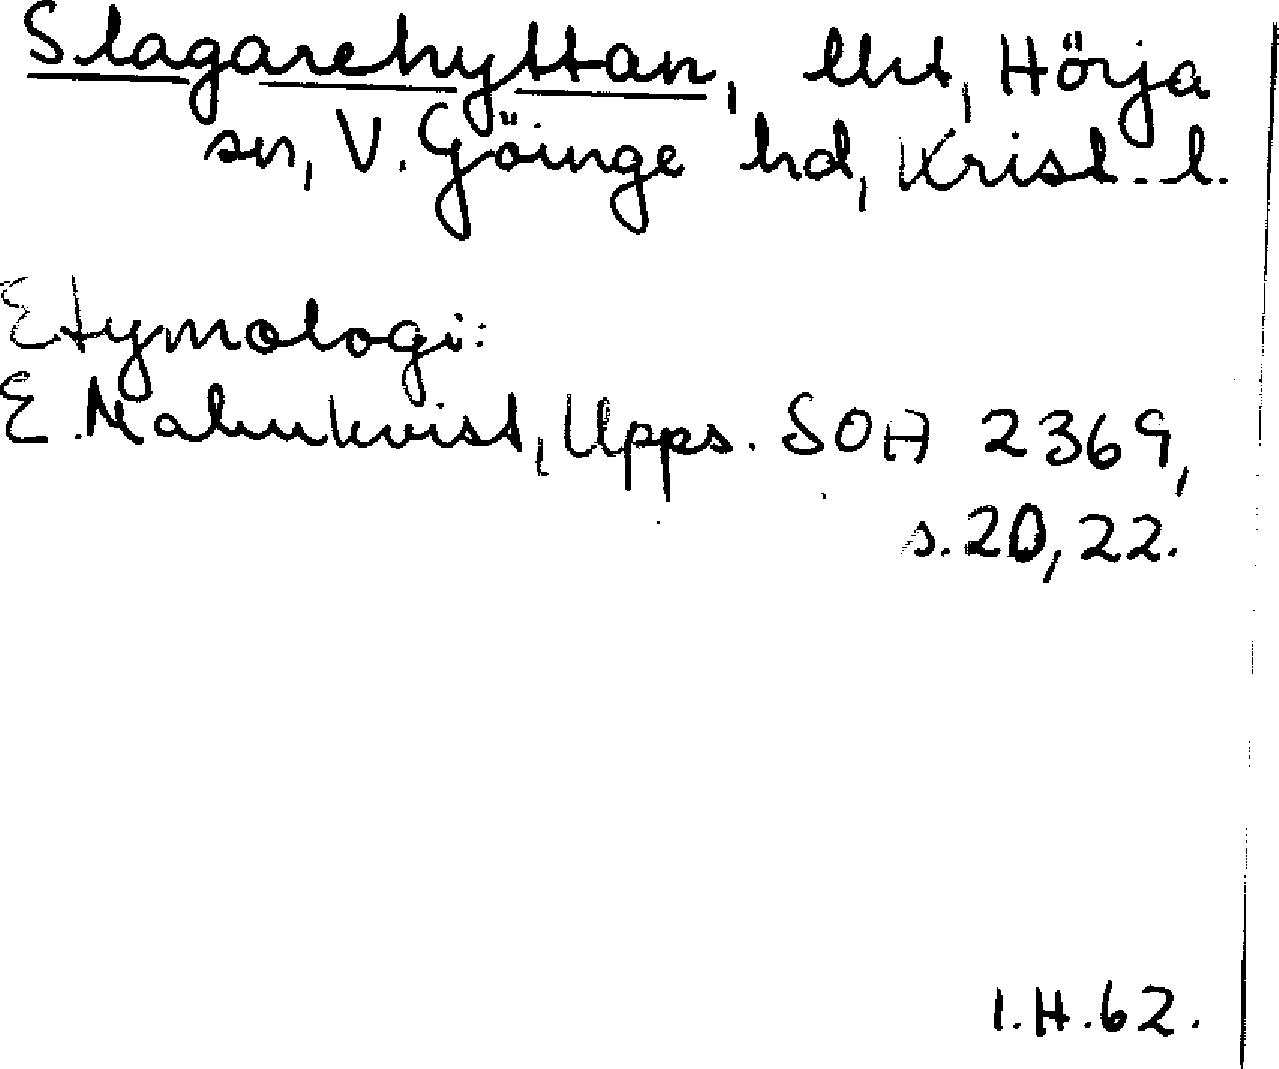 Slagarehyttan, lht, Hörja
sn, V. Göinge hd, Krist. l.
Etymologi:
E. Malmkvist, Upps. SOA 2369,
s. 20, 22.
I.H. 62.